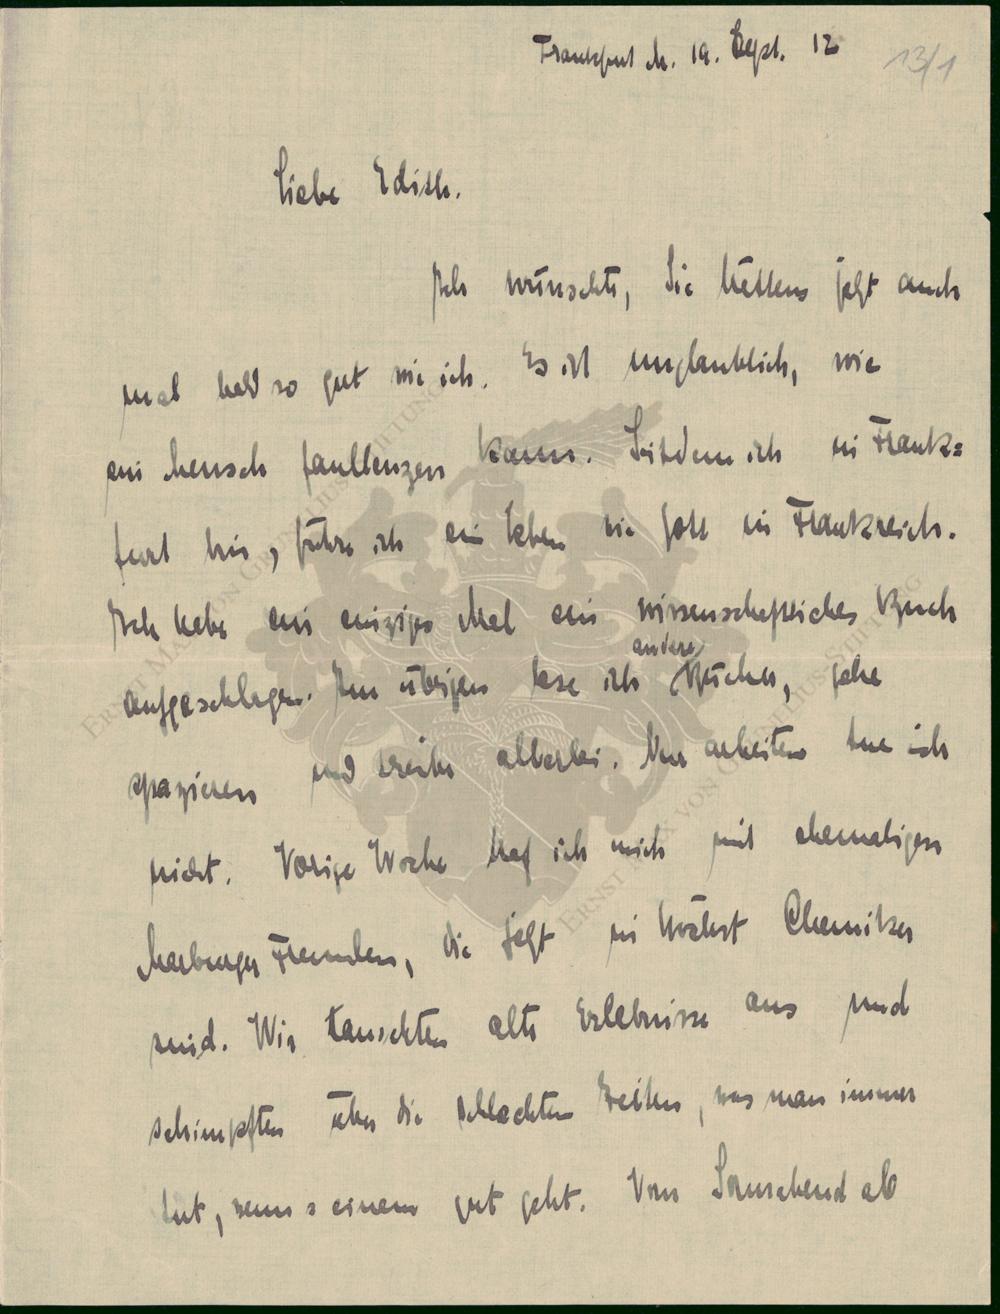 Frankfurt M. 19. Sept. 12
13/1
Liebe Edith.
Ich wünschte, Sie hättens jetzt auch
mal halb so gut wie ich. Es ist unglaublich, wie
ein Mensch faullenzen kann. Seitdem ich in Frank=
furt bin, führe ich ein Leben wie Gott in Frankreich.
Ich habe ein einziges Mal ein wissenschaftliches Buch
aufgeschlagen. Im übrigen lese ich andere Bücher, gehe
spazieren und treibe allerlei. Nur arbeiten tue ich
nicht. Vorige Woche traf ich mich mit ehemaligen
Marburger Freunden, die jetzt in Höchst Chemiker
sind. Wir tauschten alte Erlebnisse aus und
schimpften über die schlechten Zeiten, was man immer
tut, wenns einem gut geht. Vom Sonnabend ab
ERNST MAX VON GRUNELIUS-STIFTUNG
ERNST MAX VON GRUNELIUS-STIFTUNG